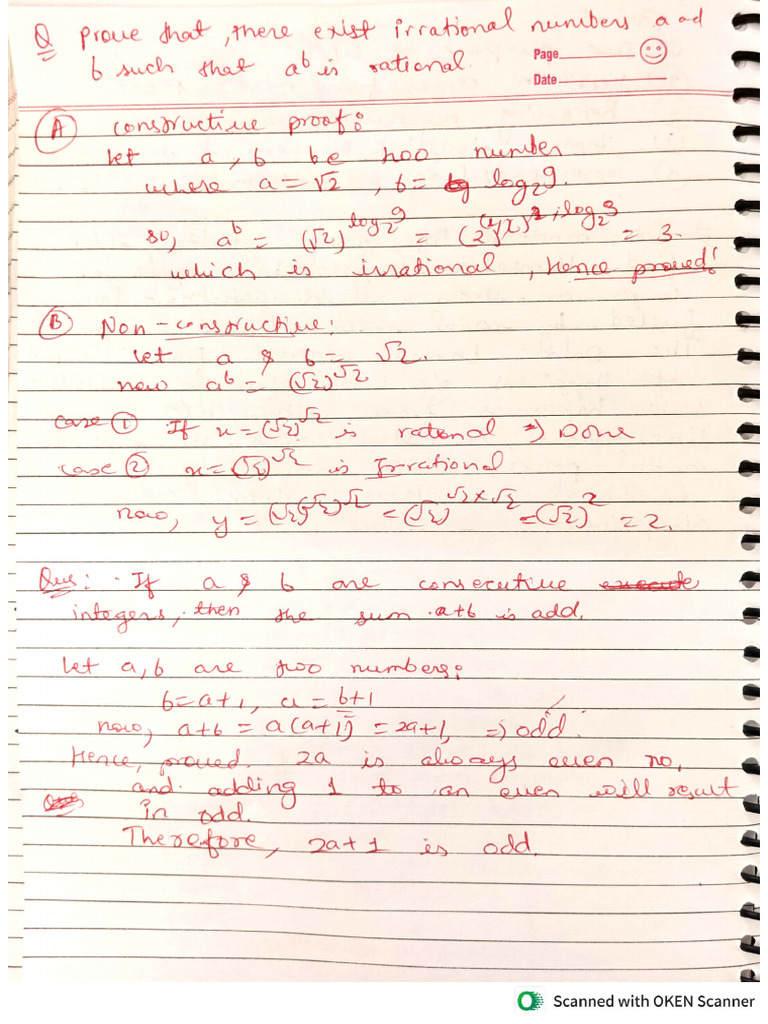 Q prove that, there exist irrational numbers a ad
b such that a^b is rational.
Page
Date
A constructive proof:
let a, b be two number
where a = √2, b = log₂9.
so, a^b = (√2)^log₂9 = (2^(1/2))^2·log₂3 = 3.
which is irrational, Hence proved!
B Non-constructive:
let a & b = √2.
now a^b = (√2)^√2
case ① If x = (√2)^√2 is rational ⇒ Done
case ② x = (√2)^√2 is Irrational
now, y = ((√2)^√2)^√2 = (√2)^√2×√2 = (√2)^2 = 2.
Ques: If a & b are consecutive
integers, then the sum a+b is odd.
Let a, b are two numbers:
b = a+1, a = b+1
now, a+b = a(a+1) = 2a+1, ⇒ odd.
Hence, proved. 2a is always even no,
and adding 1 to an even will result
in odd.
Therefore, 2a+1 is odd.
Scanned with OKEN Scanner